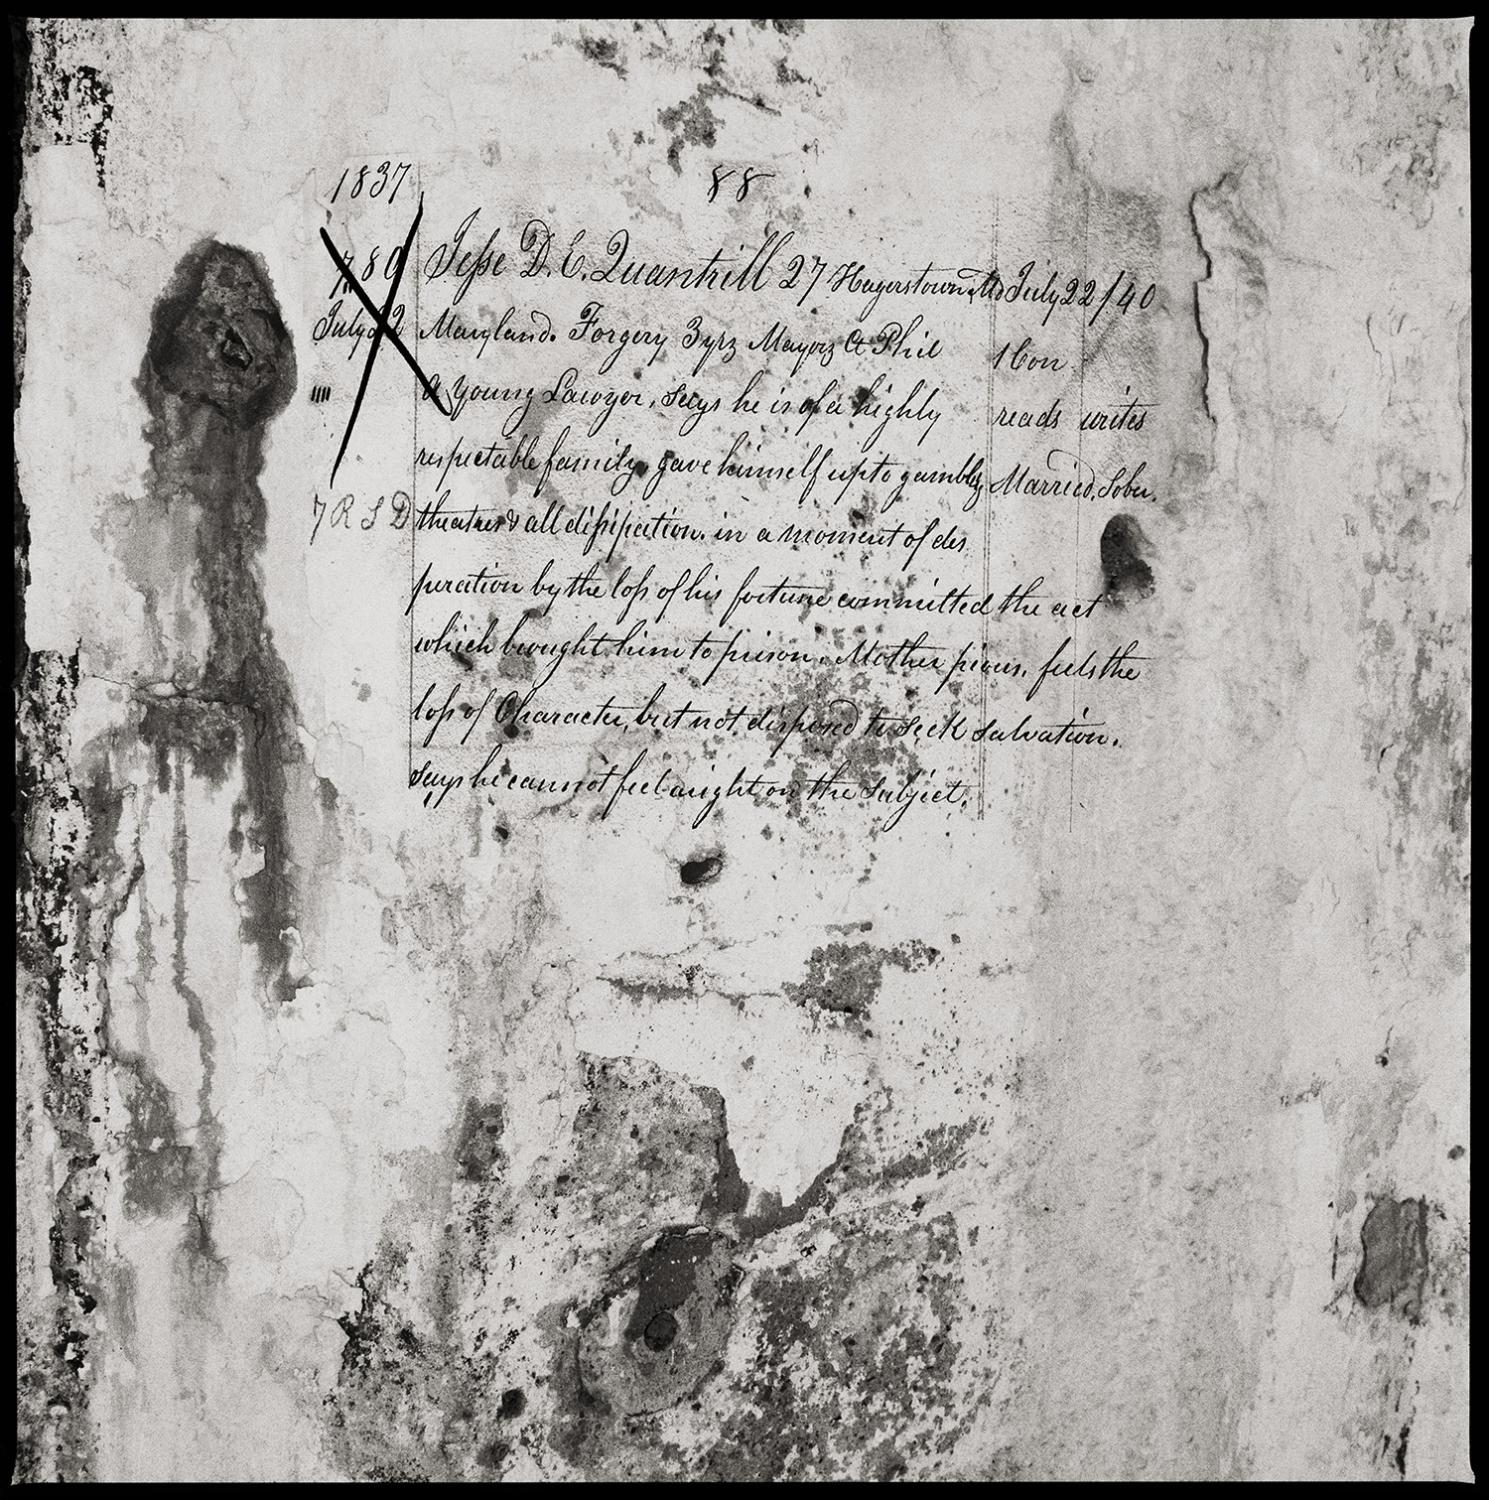 1837 88
780 Jesse D. E. Quantrill 27 Hagerstown Md July 22/40
July 22 Maryland. Forgery 3 yrs Mayors Ct Phil 1 Con
A young Lawyer, says he is of a highly reads writes
respectable family, gave himself up to gambling Married, Sober.
7 R S D theatres & all dissipation. in a moment of des
peration by the loss of his fortune committed the act
which brought him to prison. Mother pious. feels the
loss of Character, but not disposed to seek salvation.
Says he cannot feel aright on the subject.